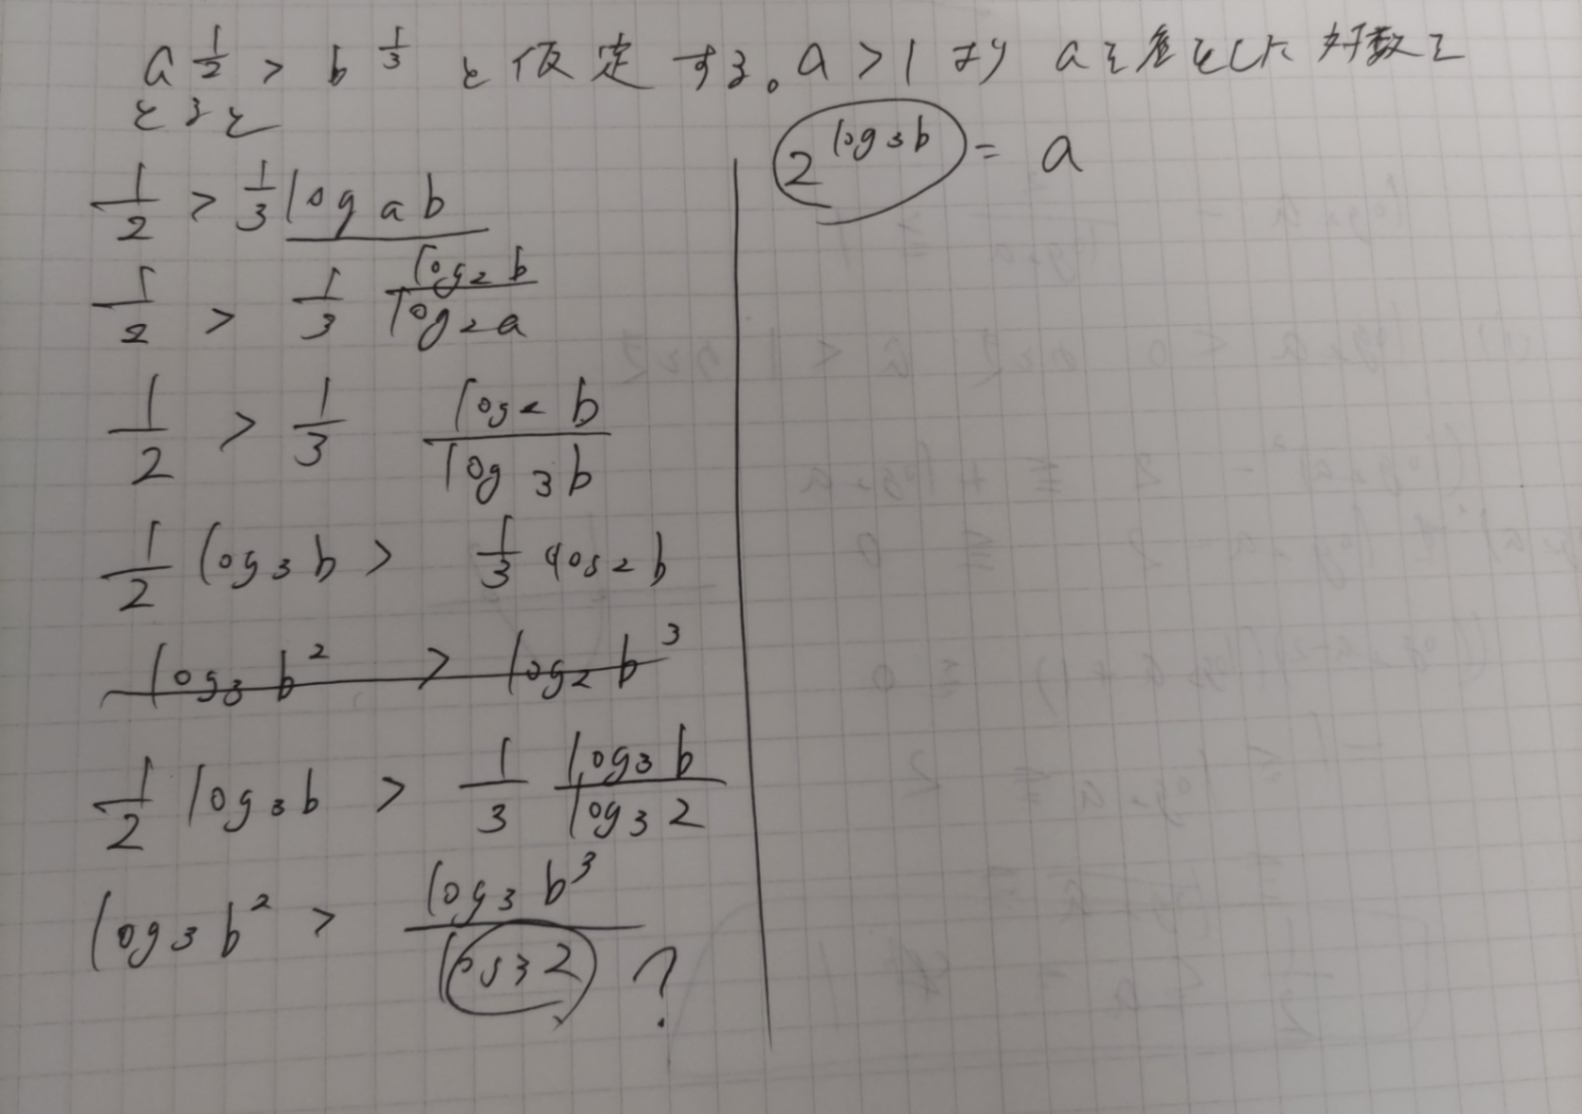 a^{1/2} > b^{1/3} と仮定する。a > 1 より aを底とした対数を
とると
1/2 > 1/3 log_a b
1/2 > 1/3 log_2 b / log_2 a
1/2 > 1/3 log_2 b / log_3 b
1/2 log_3 b > 1/3 log_2 b
log_3 b^2 > log_2 b^3
1/2 log_3 b > 1/3 log_3 b / log_3 2
log_3 b^2 > log_3 b^3 / log_3 2 ?
2^{log_3 b} = a